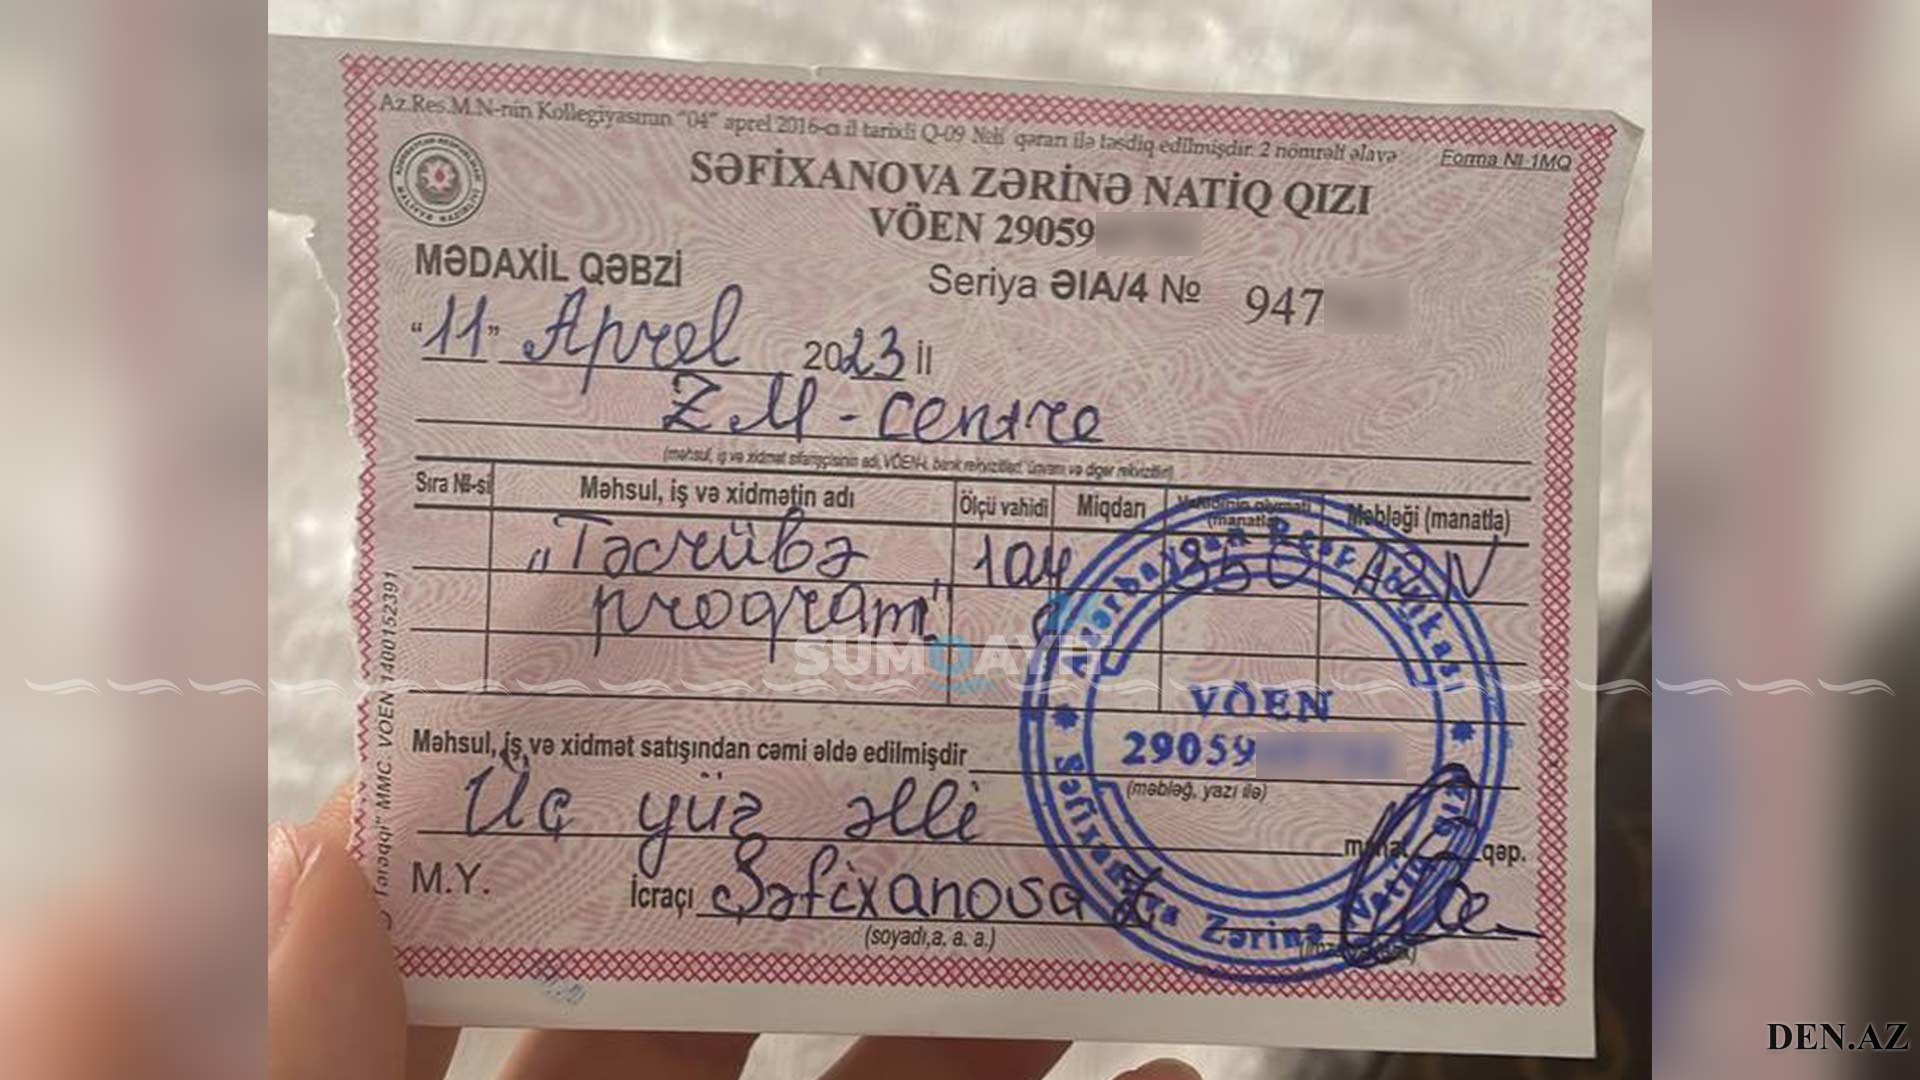 Az.Res.M.N-nin Kollegiyasının "04" aprel 2016-cı il tarixli Q-09 №-li qərarı ilə təsdiq edilmişdir. 2 nömrəli əlavə
Forma № 1MQ
SƏFİXANOVA ZƏRİNƏ NATİQ QIZI
VÖEN 29059
MƏDAXİL QƏBZİ
Seriya ƏIA/4 № 947
"11" Aprel 2023 il
ZM-centre
(məhsul, iş və xidmət sifarişçisinin adı, VÖEN-i, bank rekvizitləri, ünvanı və digər rekvizitləri)
Sıra №-si Məhsul, iş və xidmətin adı Ölçü vahidi Miqdarı (manatla) Məbləği (manatla)
"Təcrübə 1 ay 350 AZN
program"
SUMQAYIT
Məhsul, iş və xidmət satışından cəmi əldə edilmişdir
(məbləğ, yazı ilə)
Üç yüz əlli
manat qəp.
M.Y. İcraçı Səfixanova Z
(soyadı,a. a. a.)
Azərbaycan Respublikası
VÖEN
29059
Səfixanova Zərinə Natiq qızı
"Tərəqqi" MMC. VÖEN 1400152391
DEN.AZ